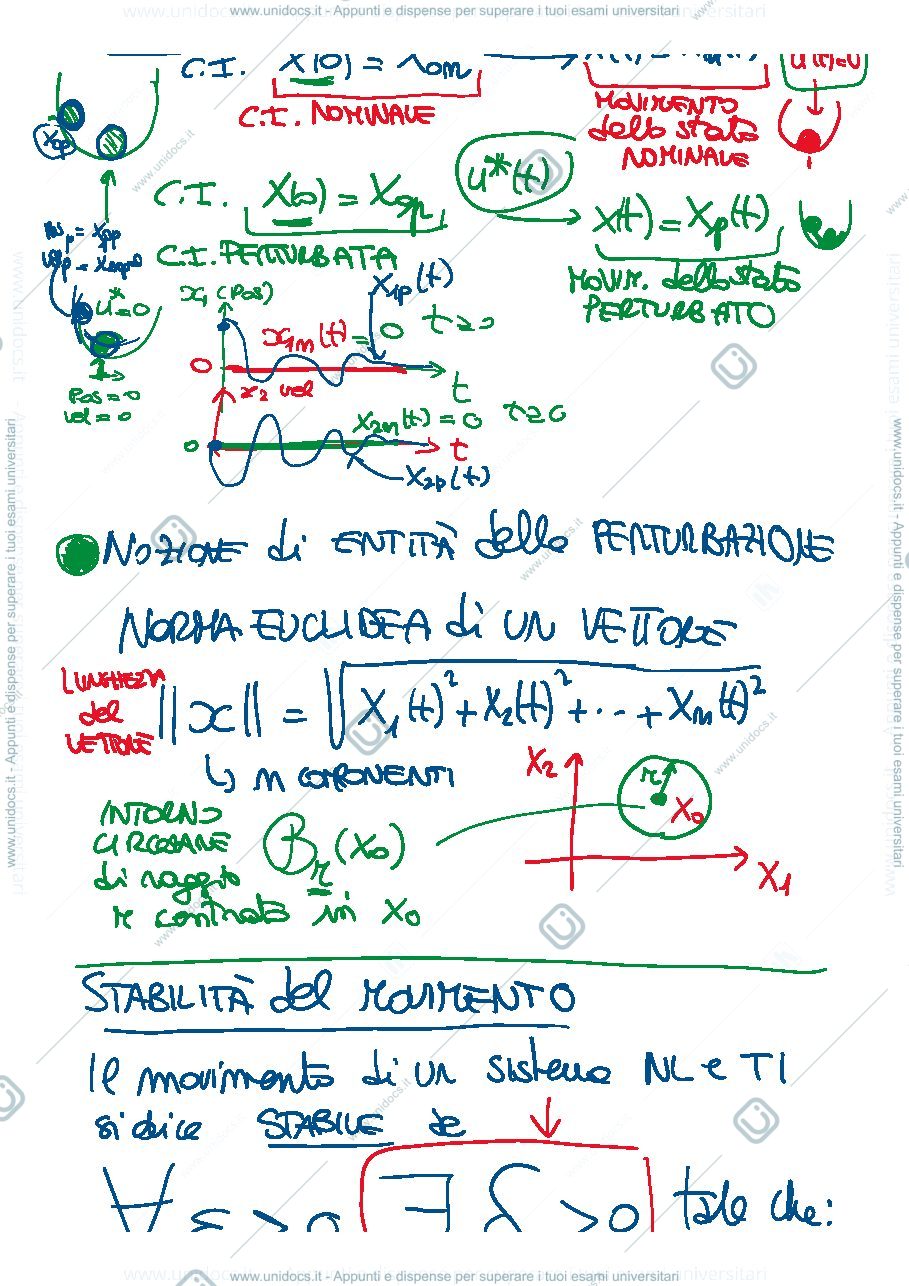 www.unidocs.it - Appunti e dispense per superare i tuoi esami universitari
C.I. X(0) = X0m
u(t)=0
C.I. NOMINALE
MOVIMENTO
dello stato
NOMINALE
X0p
u*(t)
C.I. X(0) = X0p
X(t) = Xp(t)
C.I. PERTURBATA
MOVIM. dello stato
PERTURBATO
u*=0
Pos = 0
vel = 0
x1 (Pos)
X1p(t)
x1m(t) = 0 t≥0
0
t
x2 vel
X2m(t) = 0 t≥0
0
t
X2p(t)
NOZIONE di ENTITÀ della PERTURBAZIONE
NORMA EUCLIDEA di UN VETTORE
LUNGHEZZA
del
VETTORE
||x|| = √X1(t)²+X2(t)²+...+Xm(t)²
↳ m COMPONENTI
INTORNO
CIRCOLARE
di raggio
r centrato in X0
Br(X0)
X2
r
X0
X1
STABILITÀ del MOVIMENTO
Il movimento di un sistema NL e TI
si dice STABILE se
∀ ε > 0 ∃ δ > 0 tale che:
www.unidocs.it - Appunti e dispense per superare i tuoi esami universitari